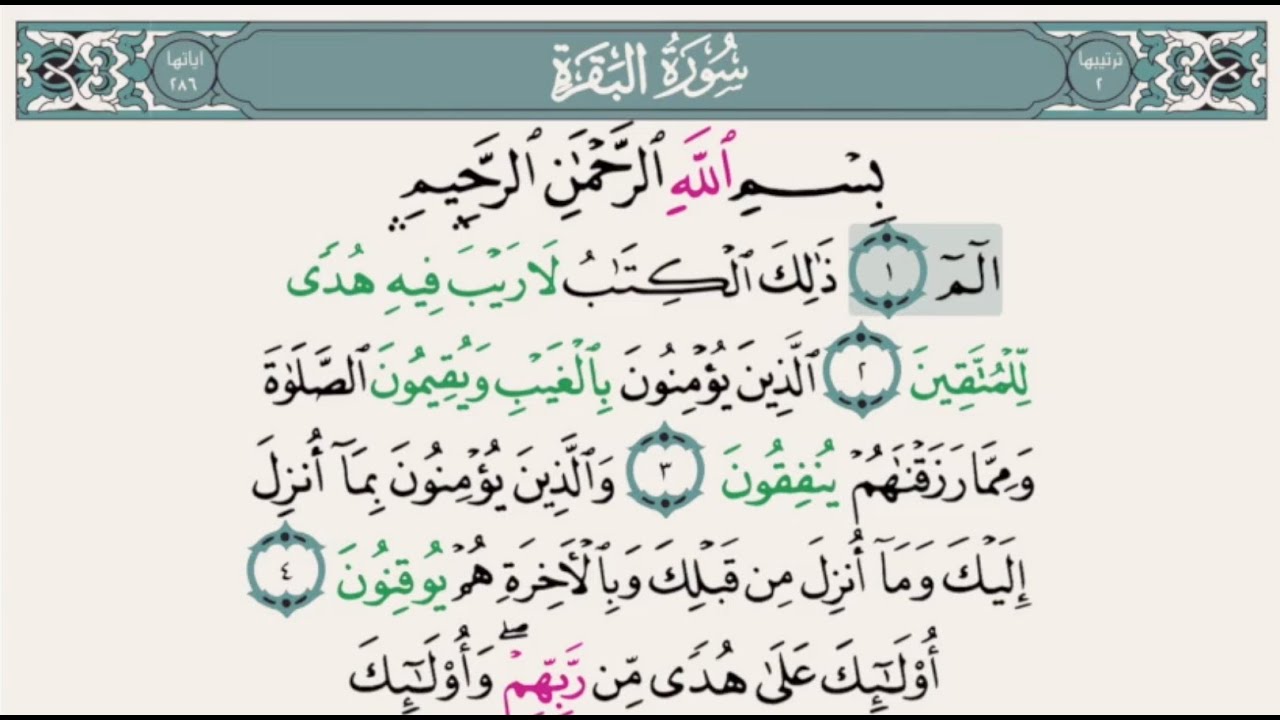 ترتيبها
٢
سُورَةُ البَقَرَةِ
اياتها
٢٨٦
بِسْمِ ٱللَّهِ ٱلرَّحْمَٰنِ ٱلرَّحِيمِ
الٓمٓ ١ ذَٰلِكَ ٱلْكِتَٰبُ لَا رَيْبَ فِيهِ هُدًى
لِّلْمُتَّقِينَ ٢ ٱلَّذِينَ يُؤْمِنُونَ بِٱلْغَيْبِ وَيُقِيمُونَ ٱلصَّلَوٰةَ
وَمِمَّا رَزَقْنَٰهُمْ يُنفِقُونَ ٣ وَٱلَّذِينَ يُؤْمِنُونَ بِمَآ أُنزِلَ
إِلَيْكَ وَمَآ أُنزِلَ مِن قَبْلِكَ وَبِٱلْأَخِرَةِ هُمْ يُوقِنُونَ ٤
أُوْلَٰٓئِكَ عَلَىٰ هُدًى مِّن رَّبِّهِمْ ۖ وَأُوْلَٰٓئِكَ